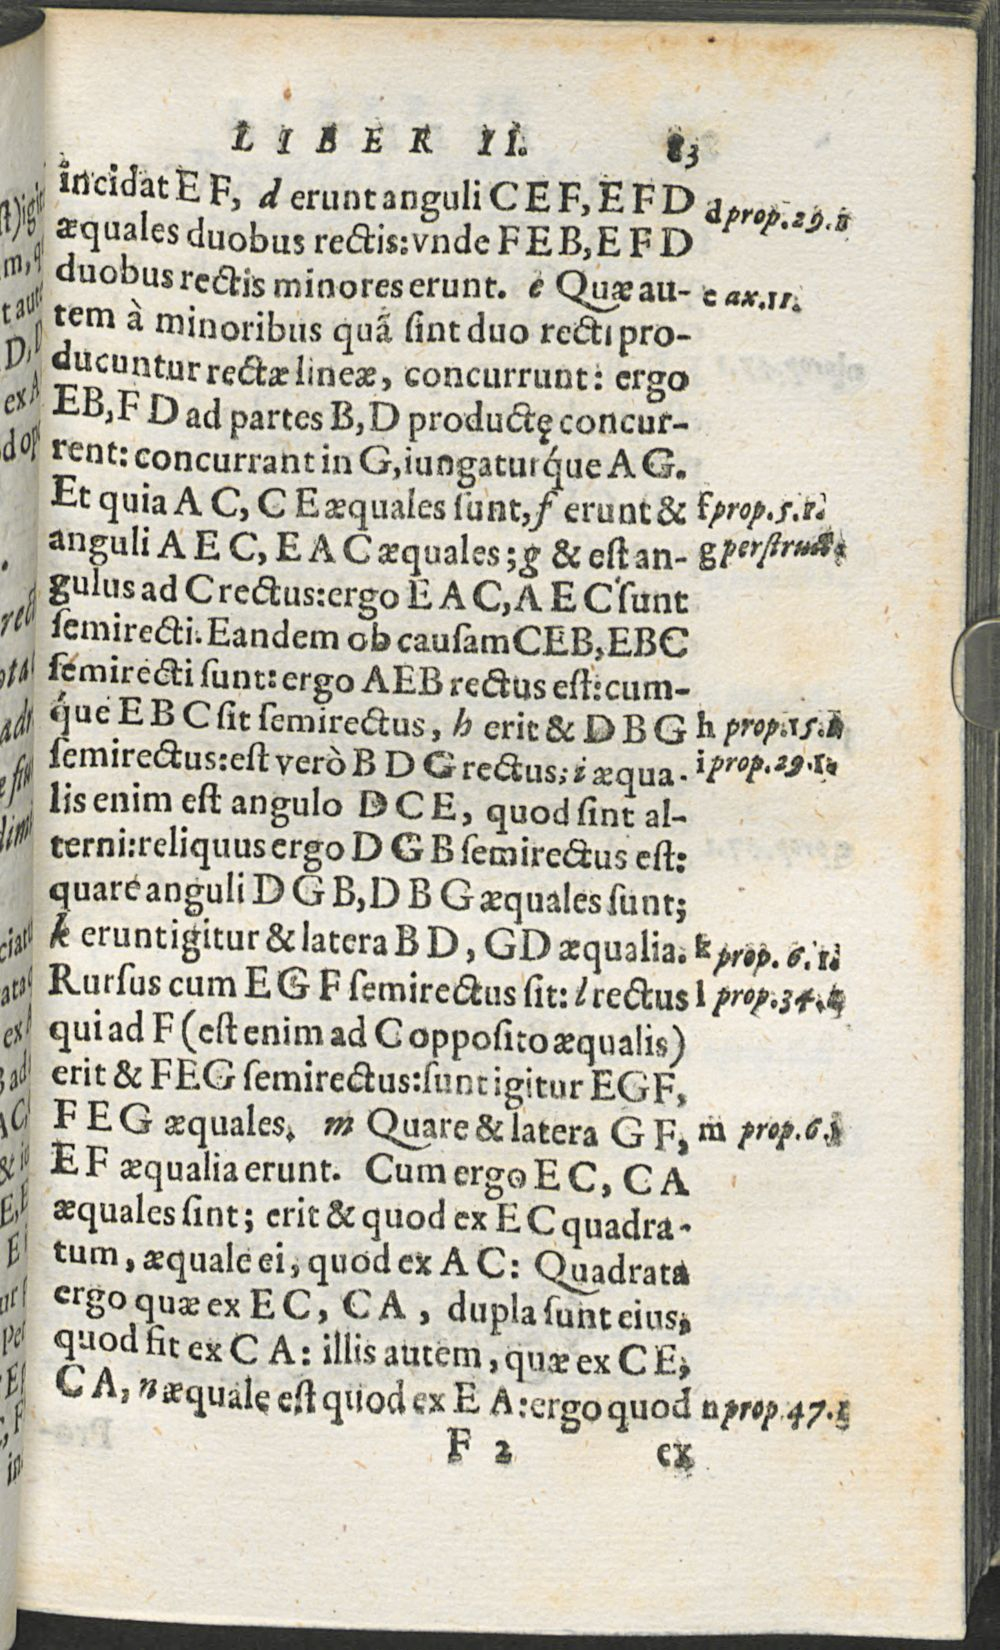 LIBER II. 83
incidat EF, d erunt anguli CEF, EFD d prop. 29. 1
æquales duobus rectis: vnde FEB, EFD
duobus rectis minores erunt. e Quæ au- e ax. 11.
tem à minoribus quã sint duo recti pro-
ducuntur rectæ lineæ, concurrunt: ergo
EB, FD ad partes B, D productę concur-
rent: concurrant in G, iungaturq́ue AG.
Et quia AC, CE æquales sunt, f erunt & f prop. 5. 1.
anguli AEC, EAC æquales; g & est an- g per struct.
gulus ad C rectus: ergo EAC, AEC sunt
semirecti. Eandem ob causam CEB, EBC
semirecti sunt: ergo AEB rectus est: cum-
q́ue EBC sit semirectus, h erit & DBG h prop. 15. 1.
semirectus: est verò BDG rectus; i æqua- i prop. 29. 1.
lis enim est angulo DCE, quod sint al-
terni: reliquus ergo DGB semirectus est:
quare anguli DGB, DBG æquales sunt;
k erunt igitur & latera BD, GD æqualia. k prop. 6. 1.
Rursus cum EGF semirectus sit: l rectus l prop. 34. 1.
qui ad F (est enim ad C opposito æqualis)
erit & FEG semirectus: sunt igitur EGF,
FEG æquales. m Quare & latera GF, m prop. 6.
EF æqualia erunt. Cum ergo EC, CA
æquales sint; erit & quod ex EC quadra-
tum, æquale ei, quod ex AC: Quadrata
ergo quæ ex EC, CA, dupla sunt eius,
quod fit ex CA: illis autem, quæ ex CE,
CA, n æquale est quod ex EA: ergo quod n prop 47. 1
F 2 ex